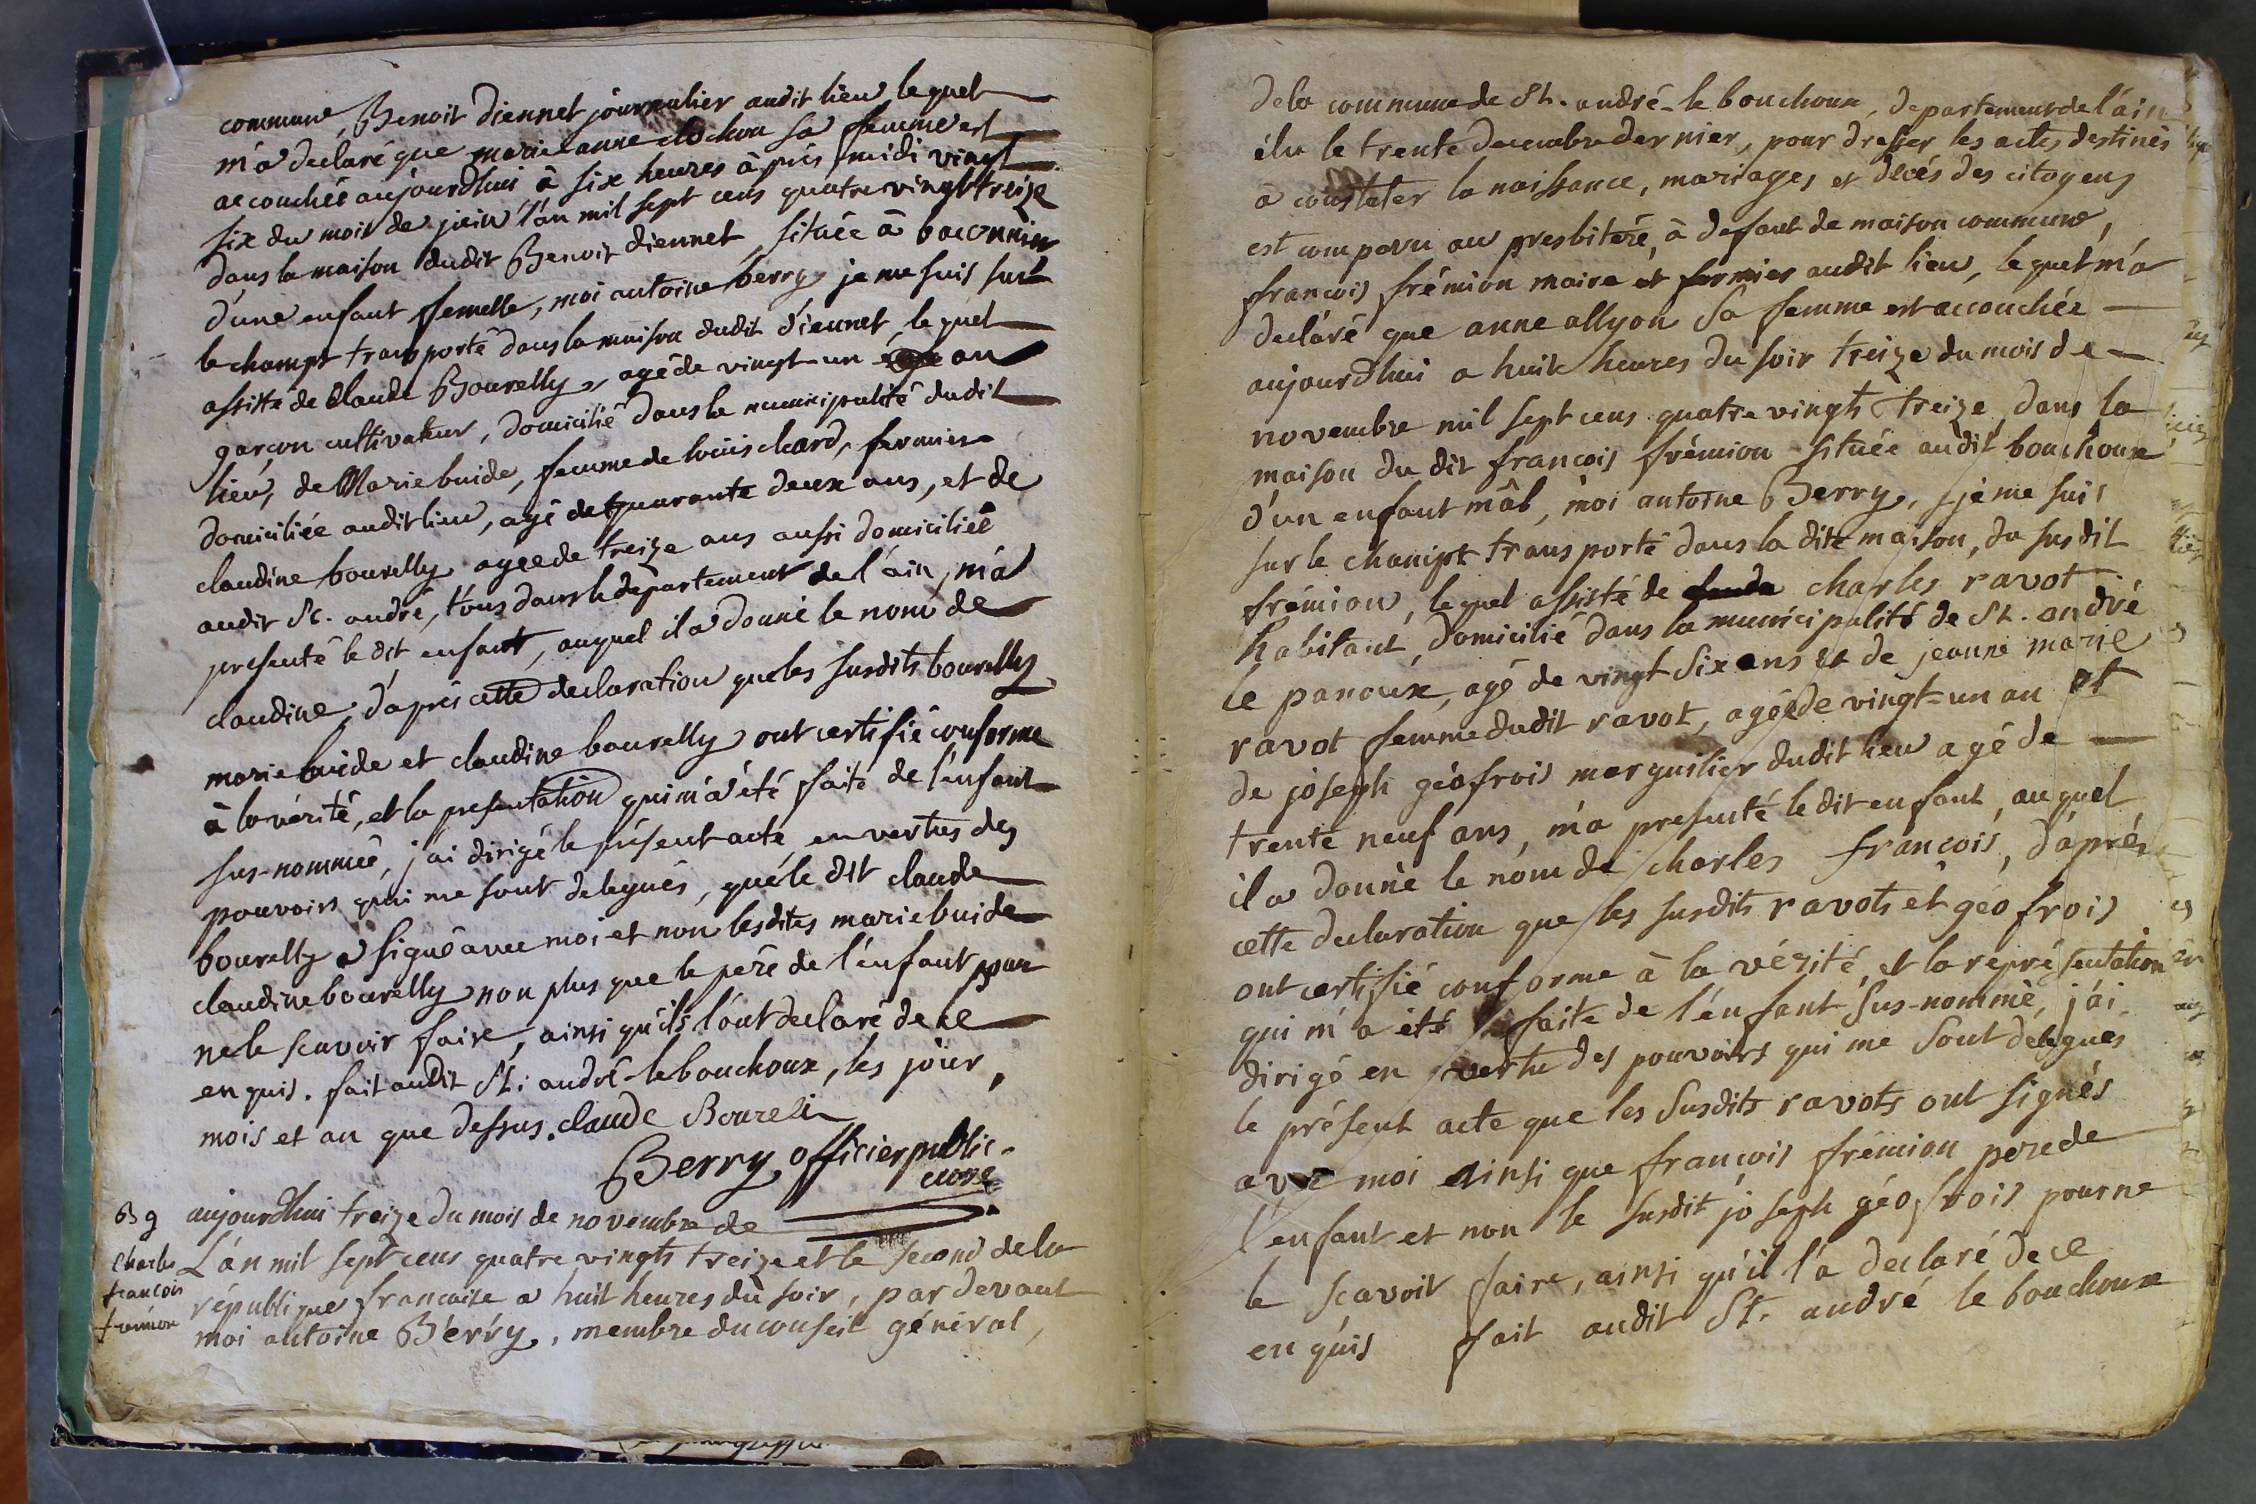 commune, Benoit diennet journalier audit lieu lequel
m'a declaré que marie anne clochon sa femme est
accouchée aujourdhui à six heures après midi vingt
six du mois de juin l'an mil sept cens quatre vingt treize
dans la maison dudit Benoit diennet, située à baconnin
d'une enfant femelle, moi antoine berry je me suis sur
le champs transporté dans la maison dudit diennet, lequel
assisté de claude Bourelly, agé de vingt-un an
garçon cultivateur, domicilié dans la municipalité dudit
lieu, de Marie buide, femme de louis chard, fermier
domiciliée audit lieu, agé de quarante deux ans, et de
claudine bourelly agée de treize ans aussi domiciliée
audit St. andré, tous dans le département de l'ain, m'a
presenté le dit enfant, auquel il a donné le nom de
claudine, d'après cette declaration que les susdits bourelly
marie buide et claudine bourelly ont certifié conforme
à la vérité, et la presentation qui m'a été faite de l'enfant
sus-nommée, j'ai dirigé le présent acte, en vertus des
pouvoirs qui me sont delegués, que le dit claude
bourelly a signé avec moi et non lesdites marie buide
claudine bourelly non plus que le père de l'enfant pour
ne le scavoir faire, ainsi qu'ils l'ont declaré de ce
enquis. fait audit St. andré-le bouchoux, les jour,
mois et an que dessus. claude Boureli
Berry officier public.
curé
B 9 aujourdhui treize du mois de novembre de
charles L'an mil sept cens quatre vingts treize et le second de la
francois république francaise a huit heures du soir, par devant
frémion moi antoine Berry, membre du conseil général,
de la commune de St. andré-le bouchoux, departement de l'ain
élu le trente decembre dernier, pour dresser les actes destinés
à constater la naissance, mariages et décés des citoyens
est comparu au presbitere, à defaut de maison commune,
francois frémion maire et fermier audit lieu, lequel m'a
declaré que anne allyon sa femme est accouchée
aujourdhui a huit heures du soir treize du mois de
novembre mil sept cens quatre vingts treize, dans la
maison du dit francois frémion située audit bouchoux
d'un enfant mâl, moi antoine Berry, je me suis
sur le champt transporté dans la dite maison, du susdit
frémion, lequel assisté de charles ravot
habitant, domicilié dans la municipalité de St. andré
le panoux, agé de vingt six ans et de jeanne marie
ravot femme dudit ravot, agée de vingt-un an et
de joseph géofrois marguilier dudit lieu agé de
trente neuf ans, m'a presenté le dit enfant, auquel
il a donné le nom de charles francois, d'après
cette declaration que les susdits ravots et géofrois
ont certifié conforme à la vérité, et la représentation
qui m'a été faite de l'enfant sus-nommé, j'ai
dirigé en vertu des pouvoirs qui me sont delegués
le présent acte que les susdits ravots ont signés
avec moi ainsi que francois frémion pere de
l'enfant et non le susdit joseph géofrois pour ne
le scavoir faire, ainsi qu'il l'a declaré de ce
enquis fait audit St. andré le bouchoux